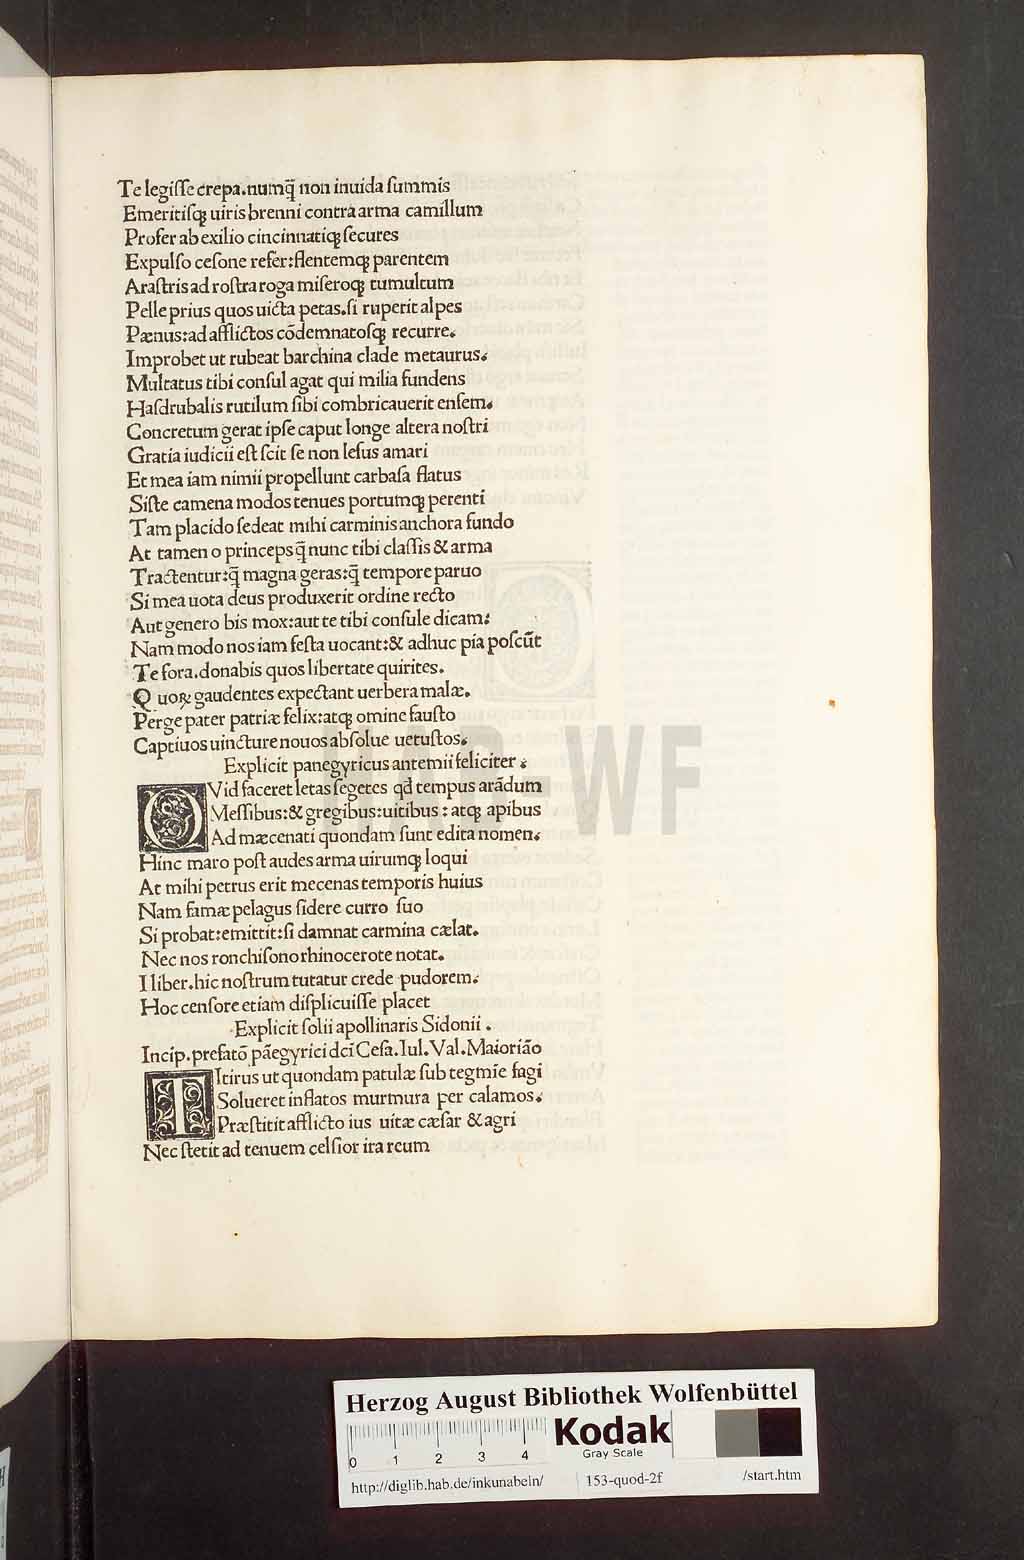 Te legiſſe crepa.numq̄ non inuida ſummis
Emeritiſqꝫ uiris brenni contra arma camillum
Profer ab exilio cincinnatiqꝫ ſecures
Expulſo ceſone refer:flentemqꝫ parentem
Araſtris ad roſtra roga miſeroqꝫ tumultum
Pelle prius quos uicta petas.ſi ruperit alpes
Pænus:ad afflictos cōdemnatoſqꝫ recurre.
Improbet ut rubeat barchina clade metaurus.
Multatus tibi conſul agat qui milia fundens
Haſdrubalis rutilum ſibi cum bricauerit enſem.
Concretum gerat ipſe caput longe altera noſtri
Gratia iudicii eſt ſcit ſe non leſus amari
Et mea iam nimii propellunt carbaſa flatus
Siſte camena modos tenues portumqꝫ petenti
Tam placido ſedeat mihi carminis anchora fundo
At tamen o princeps q̄ nunc tibi claſſis & arma
Tractentur:q̄ magna geras:q̄ tempore paruo
Si mea uota deus produxerit ordine recto
Aut genero bis mox:aut te tibi conſule dicam:
Nam modo nos iam feſta uocant:& adhuc pia poſcūt
Te fora.donabis quos libertate quirites.
Quoꝝ gaudentes expectant uerbera malæ.
Perge pater patriæ felix:atqꝫ omine fauſto
Captiuos uincture nouos abſolue uetuſtos.
Explicit panegyricus antemii feliciter.
QVid faceret letas ſegetes qd̄ tempus arādum
Meſſibus:& gregibus:uitibus:atqꝫ apibus
Ad mæcenati quondam ſunt edita nomen.
Hinc maro poſt audes arma uirumqꝫ loqui
At mihi petrus erit mecenas temporis huius
Nam famæ pelagus ſidere curro ſuo
Si probat:emittit:ſi damnat carmina cælat.
Nec nos ronchiſono rhinocerote notat.
I liber.hic noſtrum tutatur crede pudorem.
Hoc cenſore etiam diſplicuiſſe placet
Explicit ſolii apollinaris Sidonii.
Incip.prefatō pāegyrici dci Ceſa.Iul.Val.Maioriāo
TItirus ut quondam patulæ ſub tegmīe fagi
Solueret inflatos murmura per calamos.
Præſtitit afflicto ius uitæ cæſar & agri
Nec ſtetit ad tenuem celſior ira reum
HAB-WF
Herzog August Bibliothek Wolfenbüttel
0 1 2 3 4
Kodak
Gray Scale
http://diglib.hab.de/inkunabeln/ 153-quod-2f /start.htm